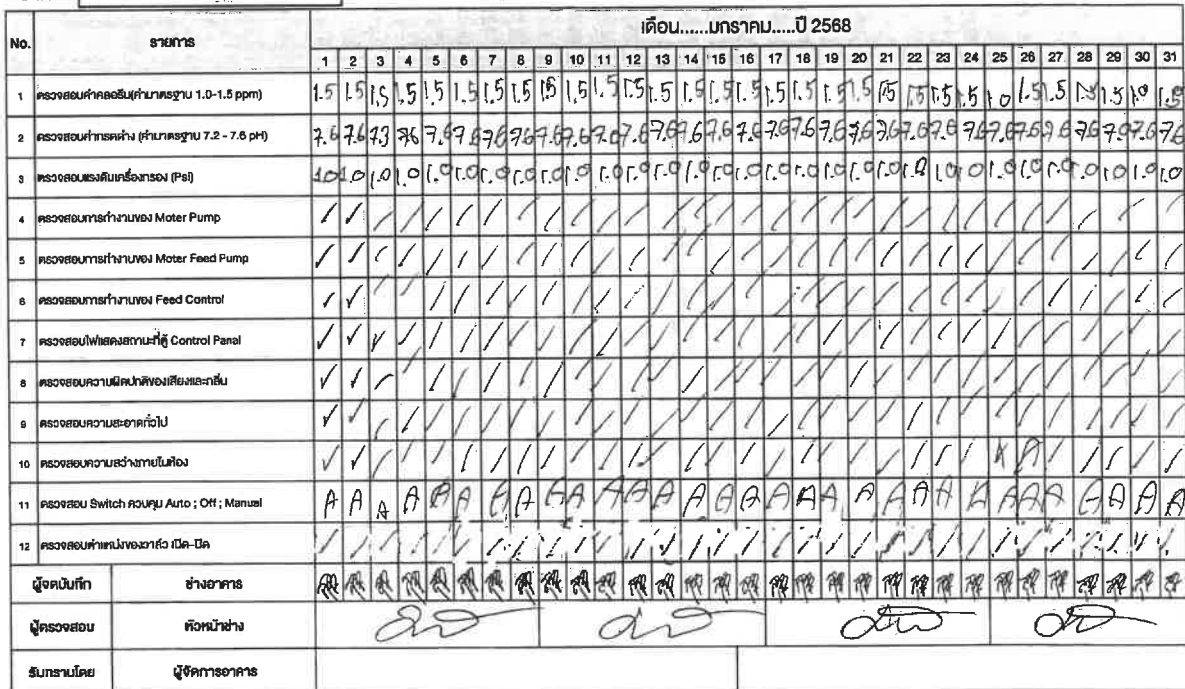 No. รายการ เดือน......มกราคม.....ปี 2568
1 2 3 4 5 6 7 8 9 10 11 12 13 14 15 16 17 18 19 20 21 22 23 24 25 26 27 28 29 30 31
1 ตรวจสอบค่าคลอรีน(ค่ามาตรฐาน 1.0-1.5 ppm) 1.5 1.5 1.5 1.5 1.5 1.5 1.5 1.5 1.5 1.5 1.5 1.5 1.5 1.5 1.5 1.5 1.5 1.5 1.5 1.5 1.5 1.5 1.5 1.5 1.0 1.5 1.5 1.5 1.5 1.0 1.5
2 ตรวจสอบค่ากรดด่าง (ค่ามาตรฐาน 7.2 - 7.6 pH) 7.6 7.6 7.3 7.6 7.6 7.6 7.6 7.6 7.6 7.6 7.0 7.6 7.6 7.6 7.6 7.6 7.6 7.6 7.6 7.6 7.6 7.6 7.6 7.6 7.6 7.6 7.6 7.6 7.0 7.6 7.6
3 ตรวจสอบแรงดันเครื่องกรอง (Psi) 1.0 1.0 1.0 1.0 1.0 1.0 1.0 1.0 1.0 1.0 1.0 1.0 1.0 1.0 1.0 1.0 1.0 1.0 1.0 1.0 1.0 1.0 1.0 1.0 1.0 1.0 1.0 1.0 1.0 1.0 1.0
4 ตรวจสอบการทำงานของ Moter Pump
5 ตรวจสอบการทำงานของ Moter Feed Pump
6 ตรวจสอบการทำงานของ Feed Control
7 ตรวจสอบไฟแสดงสถานะที่ตู้ Control Panal
8 ตรวจสอบความผิดปกติของเสียงและกลิ่น
9 ตรวจสอบความสะอาดทั่วไป
10 ตรวจสอบความสว่างภายในห้อง
11 ตรวจสอบ Switch ควบคุม Auto ; Off ; Manual A A A A A A A A A A A A A A A A A A A A A A A A A A A A A A A
12 ตรวจสอบตำแหน่งของวาล์ว เปิด-ปิด
ผู้จดบันทึก ช่างอาคาร
ผู้ตรวจสอบ หัวหน้าช่าง
รับทราบโดย ผู้จัดการอาคาร